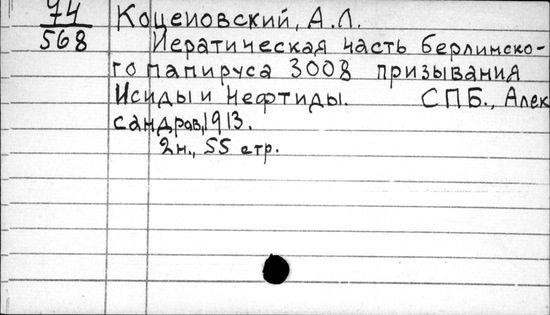 74 Коцеиовский, А.Л.
568 Иератическая часть берлинско-
го папируса 3008 призывания
Исиды и Нефтиды. СПБ., Алек
сандров, 1913.
2н., 55 стр.